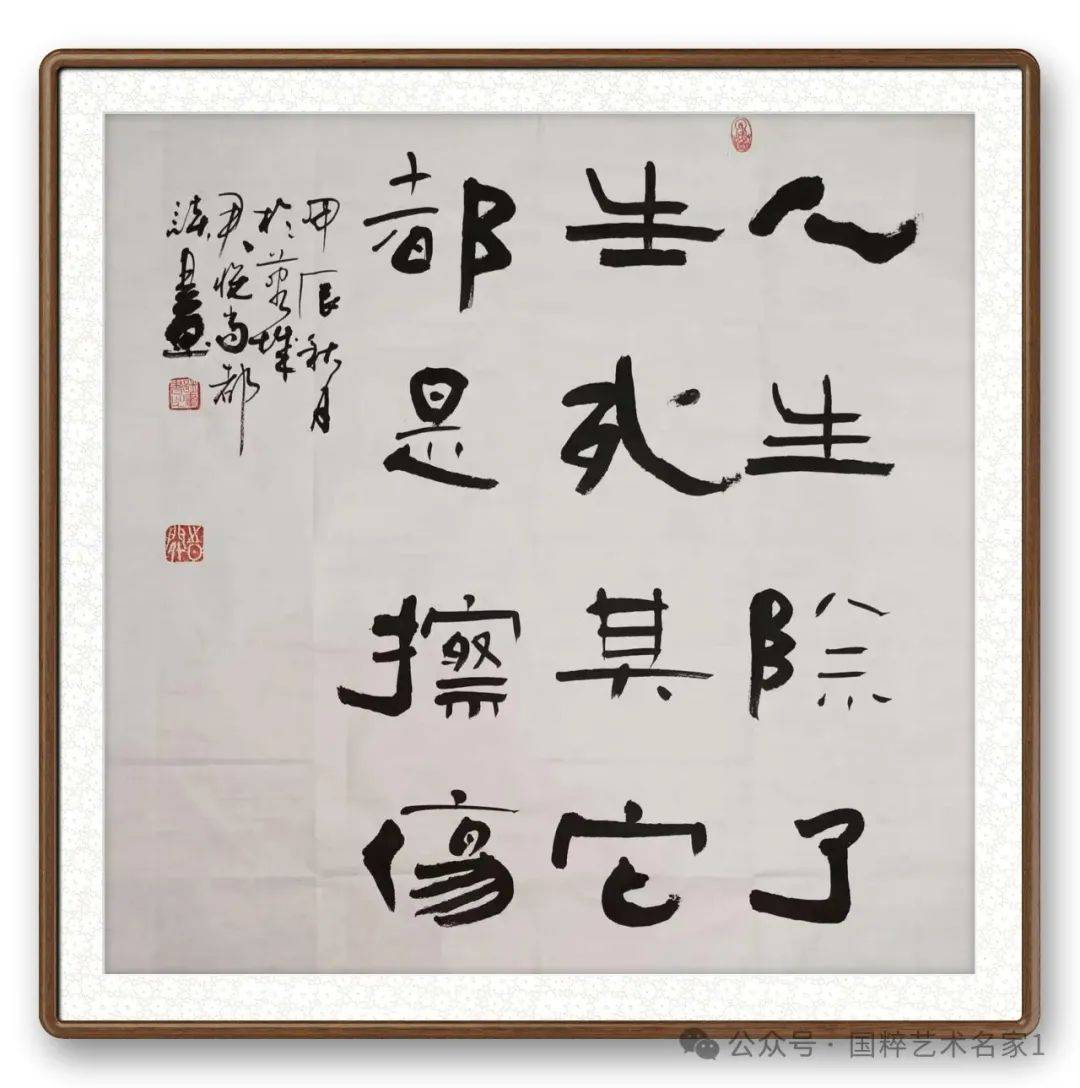 人生除了
生死其它
都是擦傷
甲辰秋月
於
尹悦尚都
公众号 · 国粹艺术名家1